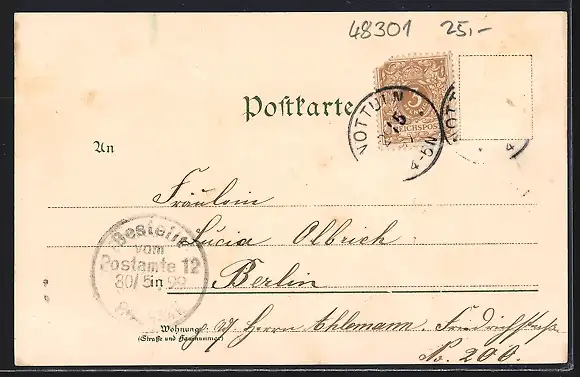 48301 25,-
Postkarte
3
REICHSPOST
NOTTULN
15
4-5N
An
Fräulein
Lucia Olbrich
in Berlin
Bestellt
vom
Postamte 12
30/5 99
Wohnung
(Straße und Hausnummer)
Herrn Ahlemann. Friedrichstraße
No. 200.